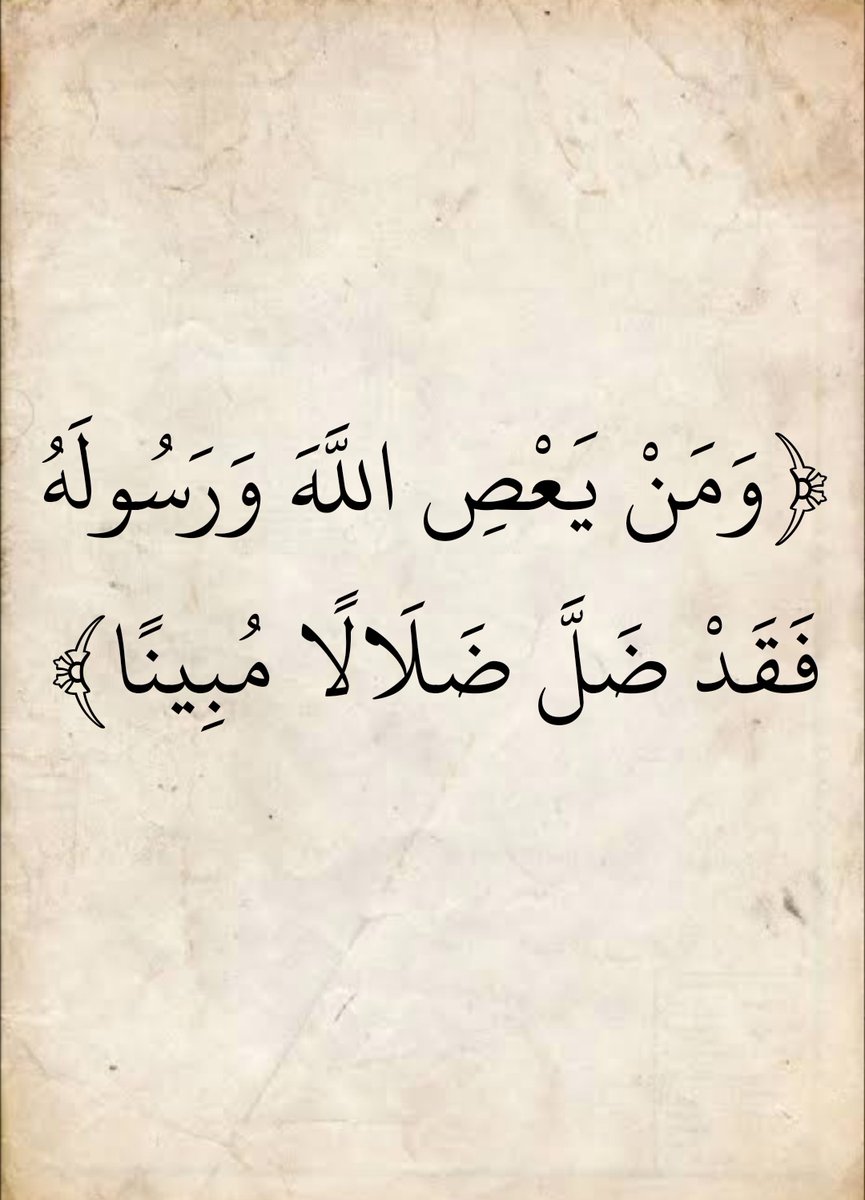 ﴿وَمَنْ يَعْصِ اللَّهَ وَرَسُولَهُ
فَقَدْ ضَلَّ ضَلَالًا مُبِينًا﴾